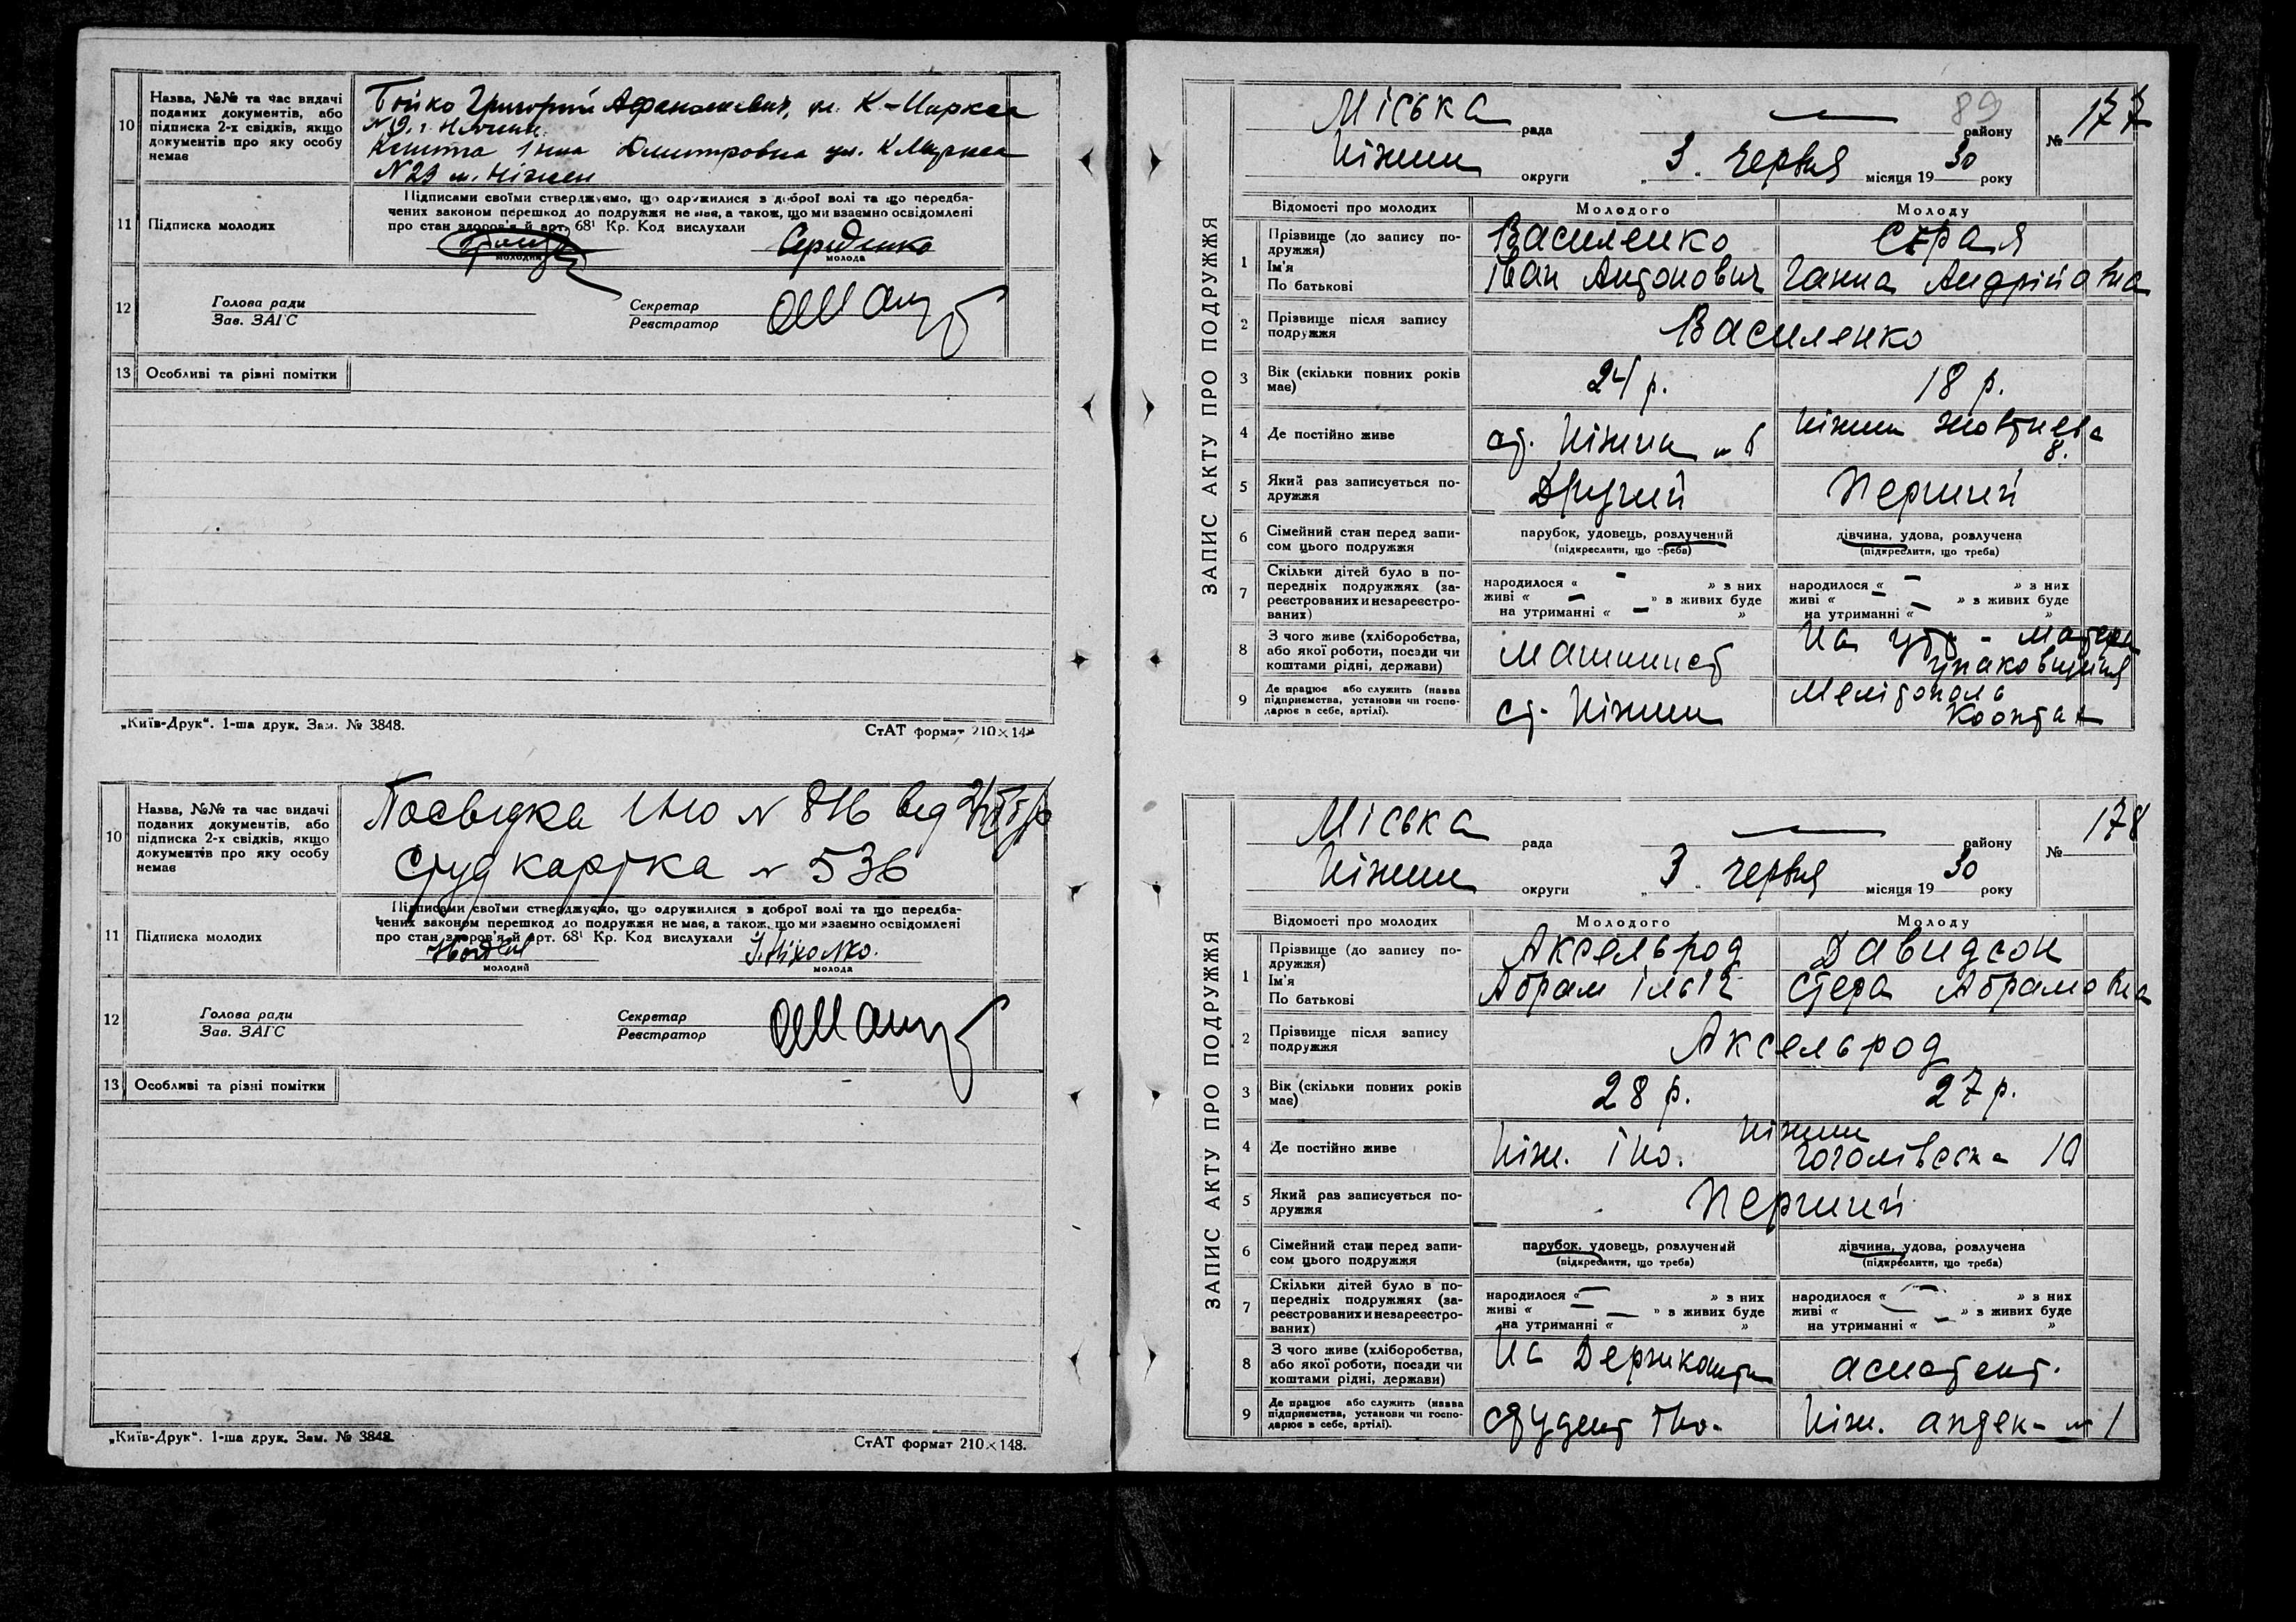 10
Назва, №№ та час видачі
поданих документів, або
підписка 2-х свідків, якщо
документів про яку особу
немає
Бойко Григорий Афанасиевич, ул. К-Маркса
N 9, г. Нежин.
Дмитровна ул. К Маркса
N 29 м. Ніжен
11
Підписка молодих
Підписами своїми стверджуємо, що одружилися з доброї волі та що передба-
чених законом перешкод до подружжя не має, а також, що ми взаємно освідомлені
про стан здоров'я й арт. 68¹ Кр. Код вислухали
Середенко
молодий
молода
12
Голова ради
Зав. ЗАГС
Секретар
Реєстратор
13
Особливі та різні помітки
„Київ-Друк“. 1-ша друк. Зам. № 3848.
СтАТ формат 210×148
10
Назва, №№ та час видачі
поданих документів, або
підписка 2-х свідків, якщо
документів про яку особу
немає
Посвідка ІНО N 816 від
Студкартка N 536
11
Підписка молодих
Підписами своїми стверджуємо, що одружилися з доброї волі та що передба-
чених законом перешкод до подружжя не має, а також, що ми взаємно освідомлені
про стан здоров'я й арт. 68¹ Кр. Код вислухали
молодий
молода
12
Голова ради
Зав. ЗАГС
Секретар
Реєстратор
13
Особливі та різні помітки
„Київ-Друк“. 1-ша друк. Зам. № 3848.
СтАТ формат 210×148.
ЗАПИС АКТУ ПРО ПОДРУЖЖЯ
89
Міська рада — району
№ 177
Ніжин округи „ 3 „ червня місяця 19 30 року
Відомості про молодих
Молодого
Молоду
1
Прізвище (до запису по-
дружжя)
Ім'я
По батькові
Василенко
Іван Антонович
Страя
Ганна Андріївна
2
Прізвище після запису
подружжя
Василенко
3
Вік (скільки повних років
має)
24 р.
18 р.
4
Де постійно живе
ст. Ніжин
Ніжин Жовтнева
8.
5
Який раз записується по-
дружжя
Другий
Перший
6
Сімейний стан перед запи-
сом цього подружжя
парубок, удовець, розлучений
(підкреслити, що треба)
дівчина, удова, розлучена
(підкреслити, що треба)
7
Скільки дітей було в по-
передніх подружжях (за-
реєстрованих и незареєстро-
ваних)
народилося « - » з них
живі « - » з живих буде
на утриманні « - »
народилося « - » з них
живі « - » з живих буде
на утриманні « - »
8
З чого живе (хліборобства,
або якої роботи, посади чи
коштами рідні, держави)
машинист
На утр - матери
9
Де працює або служить (назва
підприємства, установи чи госпо-
дарює в себе, артілі).
ст. Ніжин
Мелітополь
ЗАПИС АКТУ ПРО ПОДРУЖЖЯ
Міська рада — району
№ 178
Ніжин округи „ 3 „ червня місяця 19 30 року
Відомості про молодих
Молодого
Молоду
1
Прізвище (до запису по-
дружжя)
Ім'я
По батькові
Аксельрод
Абрам Ільіч
Давидсон
Стера Абрамовна
2
Прізвище після запису
подружжя
Аксельрод
3
Вік (скільки повних років
має)
28 р.
27 р.
4
Де постійно живе
Ніж. Іно.
Ніжин
Гоголівська 10
5
Який раз записується по-
дружжя
Перший
6
Сімейний стан перед запи-
сом цього подружжя
парубок, удовець, розлучений
(підкреслити, що треба)
дівчина, удова, розлучена
(підкреслити, що треба)
7
Скільки дітей було в по-
передніх подружжях (за-
реєстрованих и незареєстро-
ваних)
народилося « — » з них
живі « — » з живих буде
на утриманні « »
народилося « — » з них
живі « — » з живих буде
на утриманні « - »
8
З чого живе (хліборобства,
або якої роботи, посади чи
коштами рідні, держави)
На Держкошти
асистент.
9
Де працює або служить (назва
підприємства, установи чи госпо-
дарює в себе, артілі).
студент Іно.
Ніж. аптек- № 1